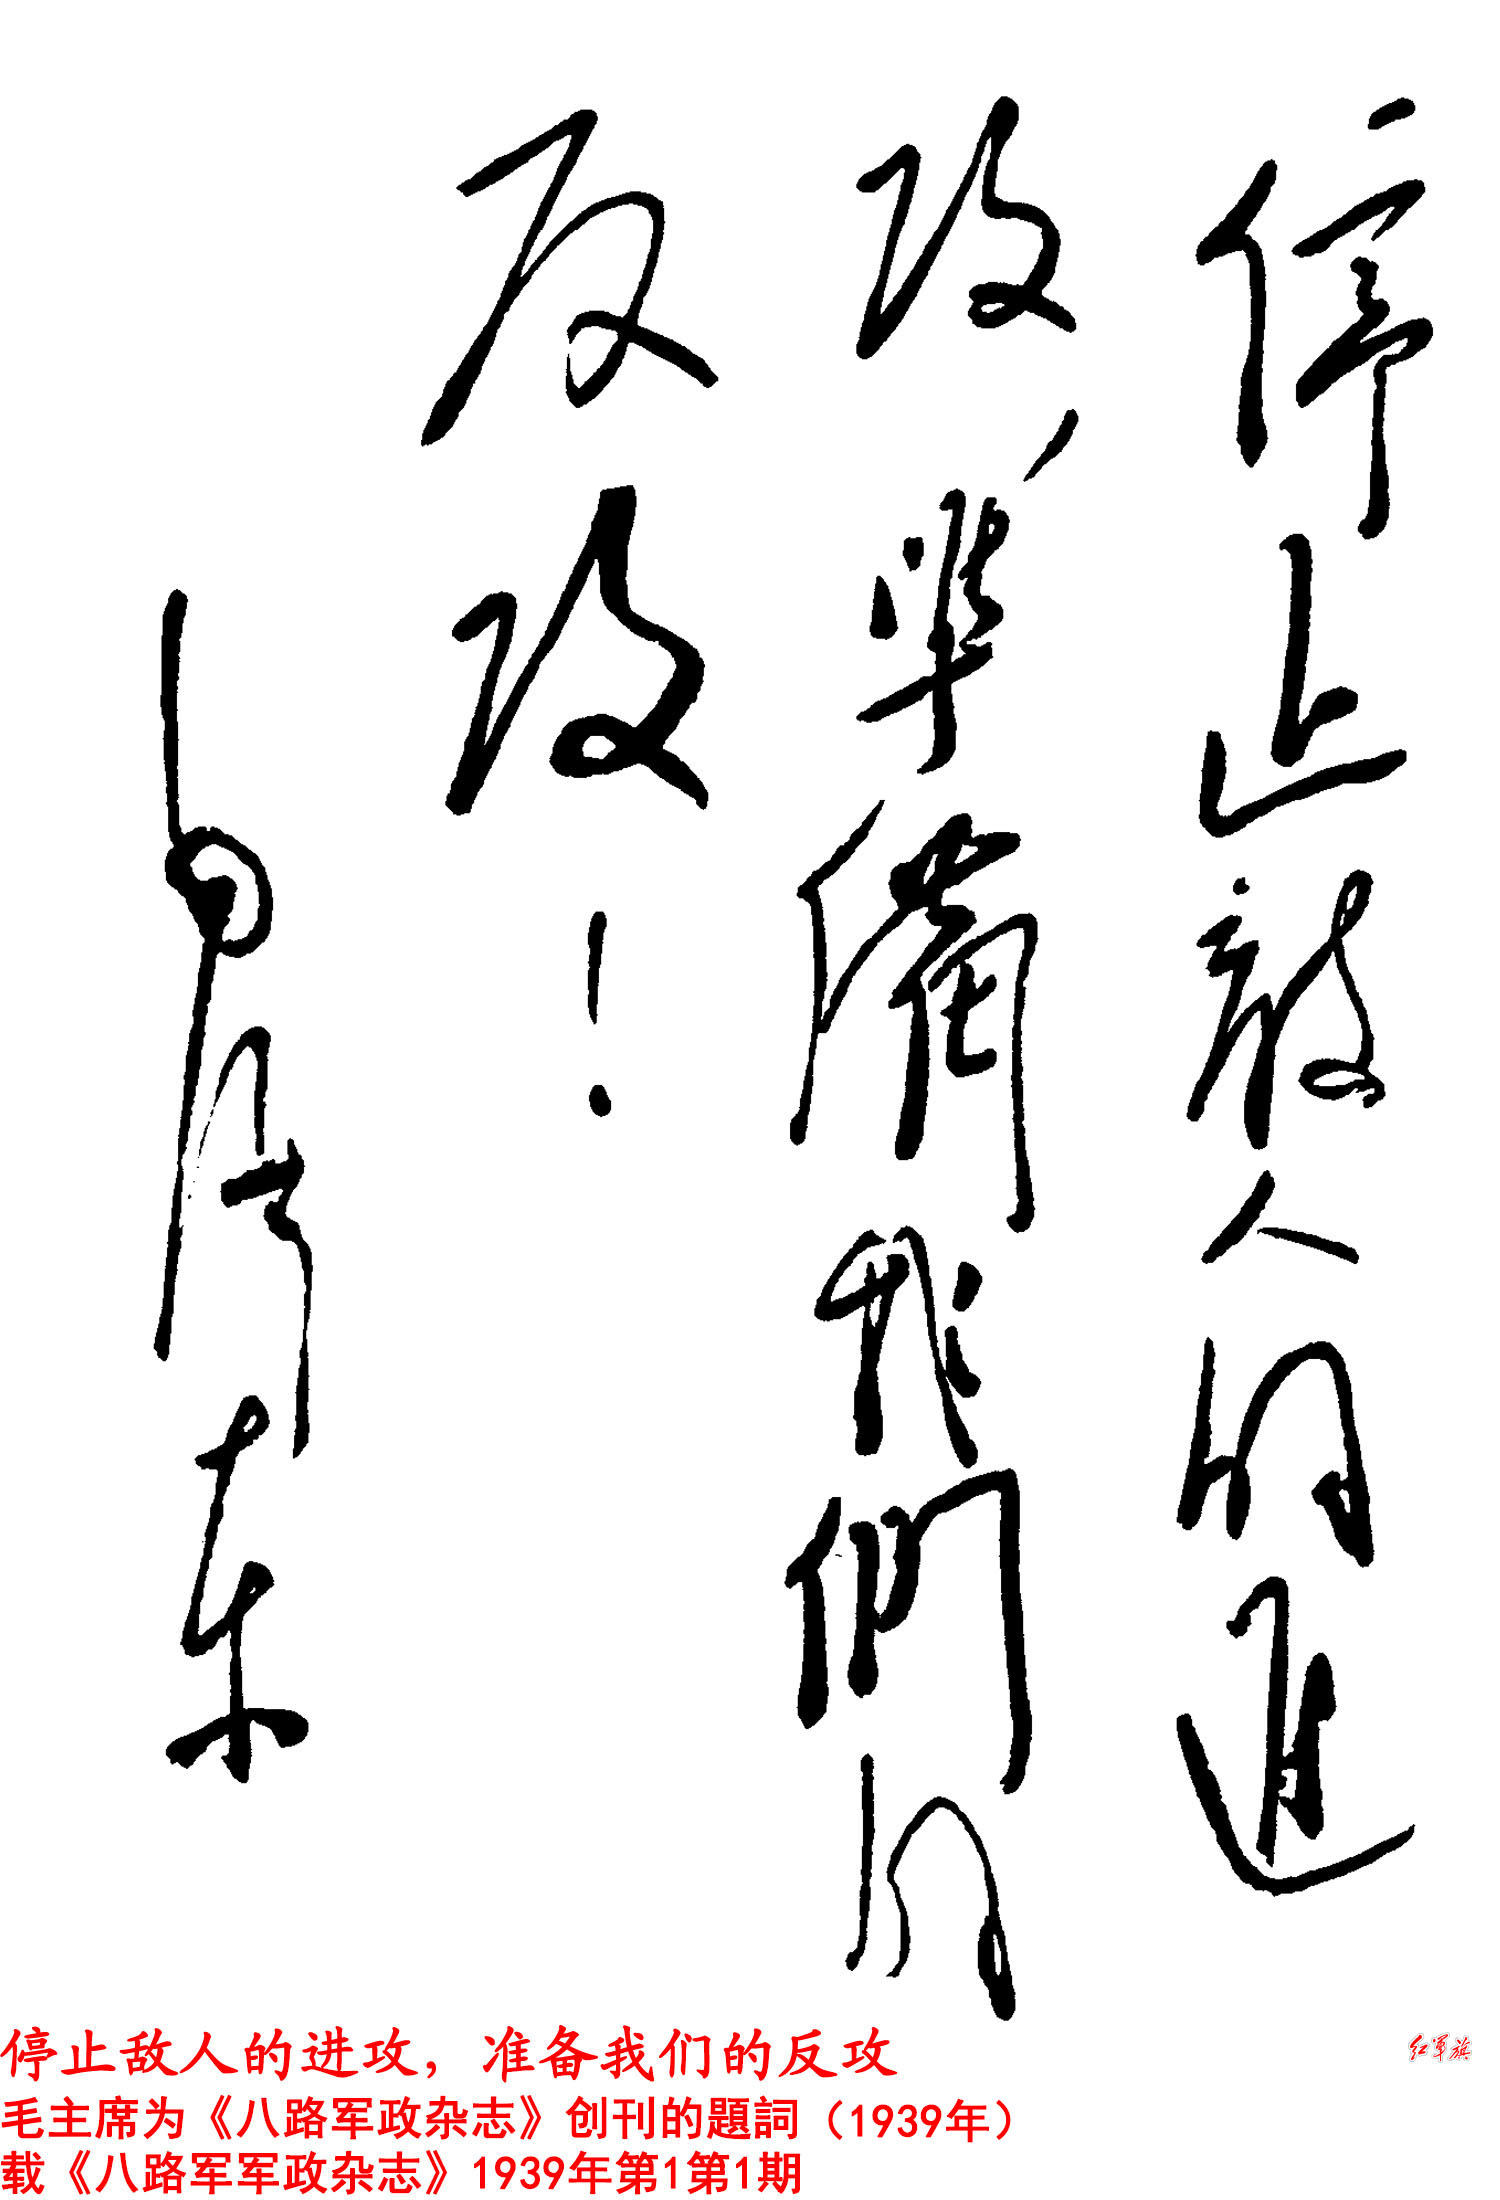 停止敵人的進
攻，準備我們的
反攻！
毛泽东
停止敌人的进攻，准备我们的反攻
毛主席为《八路军政杂志》创刊的題詞（1939年）
载《八路军军政杂志》1939年第1第1期
红军旗